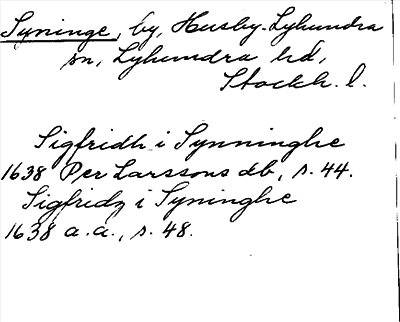 Syninge, by, Husby-Lyhundra
sn, Lyhundra hd,
Stockh. l.
Sigfridh i Synninghe
1638 Per Larssons db, s. 44.
Sigfridz i Syninghe
1638 a.a., s. 48.